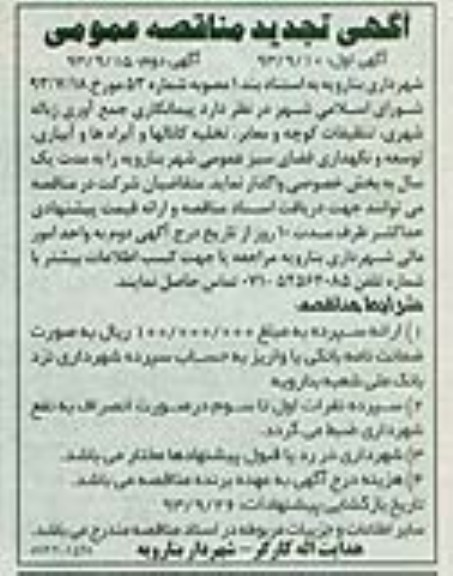 آگهی تجدید مناقصه عمومی
آگهی اول: ۹۳/۹/۱۰ آگهی دوم: ۹۳/۹/۱۵
شهرداری بنارویه به استناد بند ۱ مصوبه شماره ۵۳ مورخ ۹۳/۷/۱۸
شورای اسلامی شهر در نظر دارد پیمانکاری جمع آوری زباله
شهری، تنظیفات کوچه و معابر، تخلیه کانالها و آبراه ها و آبیاری،
توسعه و نگهداری فضای سبز عمومی شهر بنارویه را به مدت یک
سال به بخش خصوصی واگذار نماید. متقاضیان شرکت در مناقصه
می توانند جهت دریافت اسناد مناقصه و ارائه قیمت پیشنهادی
حداکثر ظرف مدت ۱۰ روز از تاریخ درج آگهی دوم به واحد امور
مالی شهرداری بنارویه مراجعه یا جهت کسب اطلاعات بیشتر با
شماره تلفن ۵۲۵۶۳۰۸۵-۰۷۱ تماس حاصل نمایند.
شرایط مناقصه:
۱) ارائه سپرده به مبلغ ۱۰۰/۰۰۰/۰۰۰ ریال به صورت
ضمانت نامه بانکی یا واریز به حساب سپرده شهرداری نزد
بانک ملی شعبه بنارویه
۲) سپرده نفرات اول تا سوم در صورت انصراف به نفع
شهرداری ضبط می گردد.
۳) شهرداری در رد یا قبول پیشنهادها مختار می باشد.
۴) هزینه درج آگهی به عهده برنده مناقصه می باشد.
تاریخ بازگشایی پیشنهادات: ۹۳/۹/۲۶
سایر اطلاعات و جزییات مربوطه در اسناد مناقصه مندرج می باشد.
هدایت اله کارگر – شهردار بنارویه